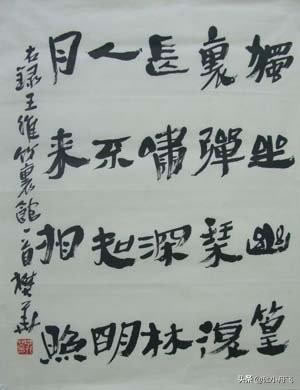 獨坐幽篁
裏彈琴復
長嘯深林
人不知明
月来相照
右錄王維竹裏館一首
头条